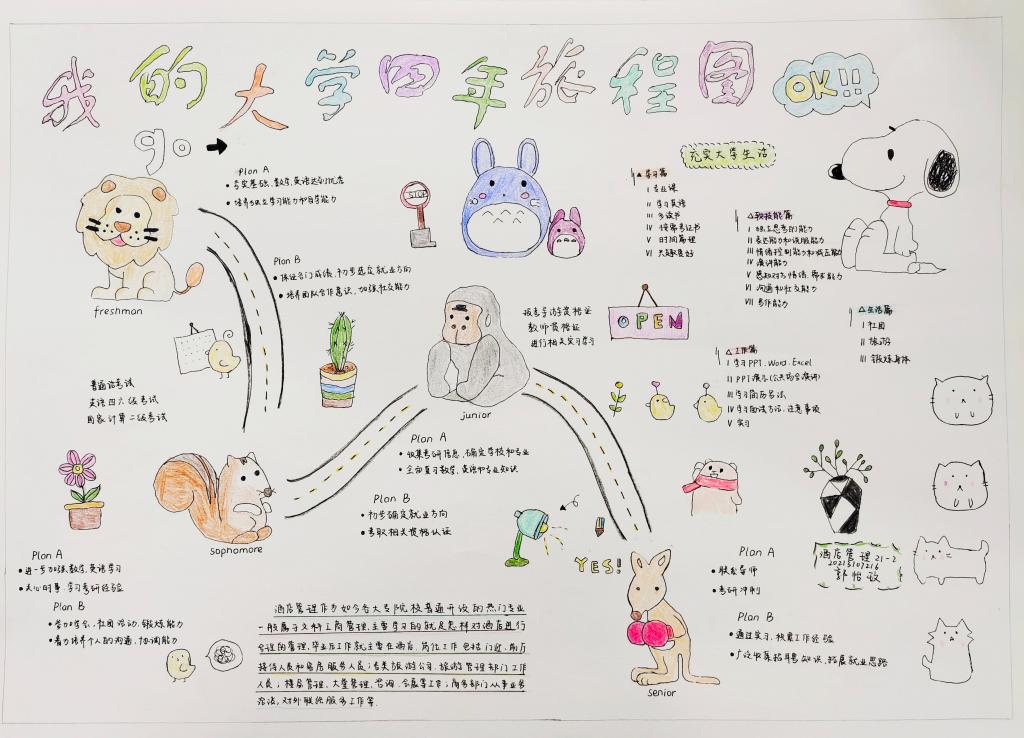 我的大学四年旅程图 OK!!!
go
Plan A
• 夯实基础,数学,英语达到优秀
• 培养独立学习能力和自学能力
Plan B
• 保证各门成绩,初步选定就业方向
• 培养团队合作意识,加强社交能力
freshman
普通话考试
英语四六级考试
国家计算二级考试
STOP
报考导游资格证
教师资格证
进行相关实习学习
OPEN
junior
充实大学生活
△ 学习篇
I 专业课
II 学习英语
III 多读书
IV 技能考证书
V 时间管理
VI 兴趣爱好
△ 软技能篇
I 独立思考的能力
II 表达能力和说服能力
III 情绪控制能力和适应能力
IV 演讲能力
V 感知对方情绪,需求能力
VI 沟通和社交能力
VII 写作能力
△ 生活篇
I 社团
II 旅游
III 锻炼身体
△ 工作篇
I 学习PPT、Word、Excel
II PPT演示(公共场合演讲)
III 学习简历写法
IV 学习面试方法,注意事项
V 实习
Plan A
• 收集考研信息,确定学校和专业
• 全面复习数学,英语和专业知识
Plan B
• 初步确定就业方向
• 考取相关资格认证
sophomore
Plan A
• 进一步加强数学,英语学习
• 关心时事,学习考研经验
Plan B
• 参加学会,社团活动,锻炼能力
• 着力培养个人的沟通,协调能力
YES!
酒店管理作为如今各大专院校普通开设的热门专业
一般属于文科工商管理,主要学习的就是怎样对酒店进行
合理的管理,毕业后工作就主要在酒店,岗位工作包括门迎,前厅
接待人员和客房服务人员;各类旅游公司,旅游管理部门工作
人员;楼层管理、大堂管理、咨询、会展等工作;商务部门从事业务
洽谈,对外联络服务工作等.
senior
Plan A
• 联系导师
• 考研冲刺
Plan B
• 通过实习,积累工作经验
• 广泛收集招聘知识,拓展就业思路
酒店管理21-2
20215107216